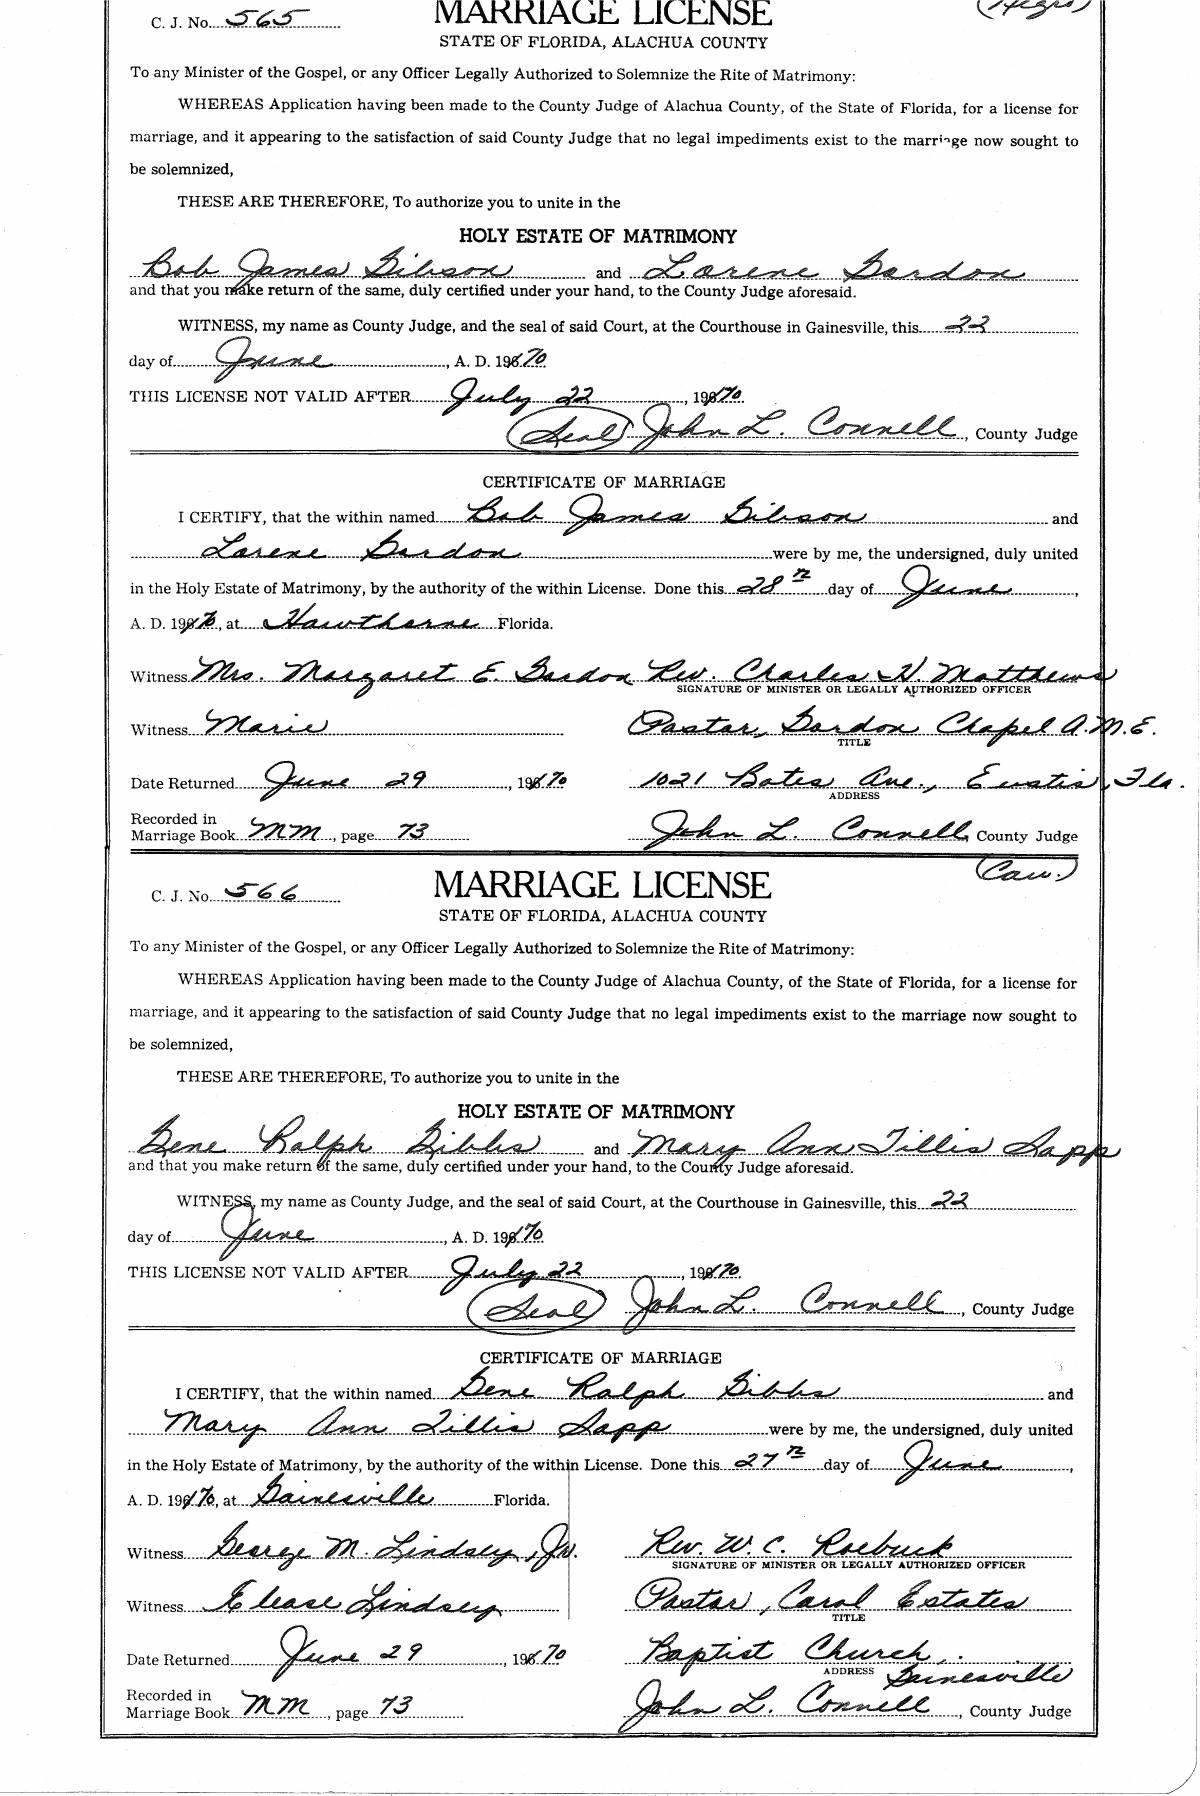 C. J. No. 565 MARRIAGE LICENSE (Negro)
STATE OF FLORIDA, ALACHUA COUNTY
To any Minister of the Gospel, or any Officer Legally Authorized to Solemnize the Rite of Matrimony:
WHEREAS Application having been made to the County Judge of Alachua County, of the State of Florida, for a license for
marriage, and it appearing to the satisfaction of said County Judge that no legal impediments exist to the marriage now sought to
be solemnized,
THESE ARE THEREFORE, To authorize you to unite in the
HOLY ESTATE OF MATRIMONY
Bob James Gibson and Lorene Gordon
and that you make return of the same, duly certified under your hand, to the County Judge aforesaid.
WITNESS, my name as County Judge, and the seal of said Court, at the Courthouse in Gainesville, this 22
day of June, A. D. 1970
THIS LICENSE NOT VALID AFTER July 22, 1970
(Seal) John L. Connell, County Judge
CERTIFICATE OF MARRIAGE
I CERTIFY, that the within named Bob James Gibson and
Lorene Gordon were by me, the undersigned, duly united
in the Holy Estate of Matrimony, by the authority of the within License. Done this 28th day of June,
A. D. 1970, at Hawthorne Florida.
Witness Mrs. Margaret E. Gordon Rev. Charles H. Matthews
SIGNATURE OF MINISTER OR LEGALLY AUTHORIZED OFFICER
Witness Marie Pastor, Gordon Chapel A.M.E.
TITLE
Date Returned June 29, 1970 1021 Bates Ave., Eustis, Fla.
ADDRESS
Recorded in
Marriage Book MM, page 73 John L. Connell, County Judge
(Cau.)
C. J. No. 566 MARRIAGE LICENSE
STATE OF FLORIDA, ALACHUA COUNTY
To any Minister of the Gospel, or any Officer Legally Authorized to Solemnize the Rite of Matrimony:
WHEREAS Application having been made to the County Judge of Alachua County, of the State of Florida, for a license for
marriage, and it appearing to the satisfaction of said County Judge that no legal impediments exist to the marriage now sought to
be solemnized,
THESE ARE THEREFORE, To authorize you to unite in the
HOLY ESTATE OF MATRIMONY
Gene Ralph Gibbs and Mary Ann Tillis Sapp
and that you make return of the same, duly certified under your hand, to the County Judge aforesaid.
WITNESS, my name as County Judge, and the seal of said Court, at the Courthouse in Gainesville, this 22
day of June, A. D. 1970
THIS LICENSE NOT VALID AFTER July 22, 1970
(Seal) John L. Connell, County Judge
CERTIFICATE OF MARRIAGE
I CERTIFY, that the within named Gene Ralph Gibbs and
Mary Ann Tillis Sapp were by me, the undersigned, duly united
in the Holy Estate of Matrimony, by the authority of the within License. Done this 27th day of June,
A. D. 1970, at Gainesville Florida.
Witness George M. Lindsey, Jr. Rev. W. C. Roebuck
SIGNATURE OF MINISTER OR LEGALLY AUTHORIZED OFFICER
Witness Elease Lindsey Pastor, Carol Estates
TITLE
Date Returned June 29, 1970 Baptist Church,
ADDRESS Gainesville
Recorded in
Marriage Book MM, page 73 John L. Connell, County Judge